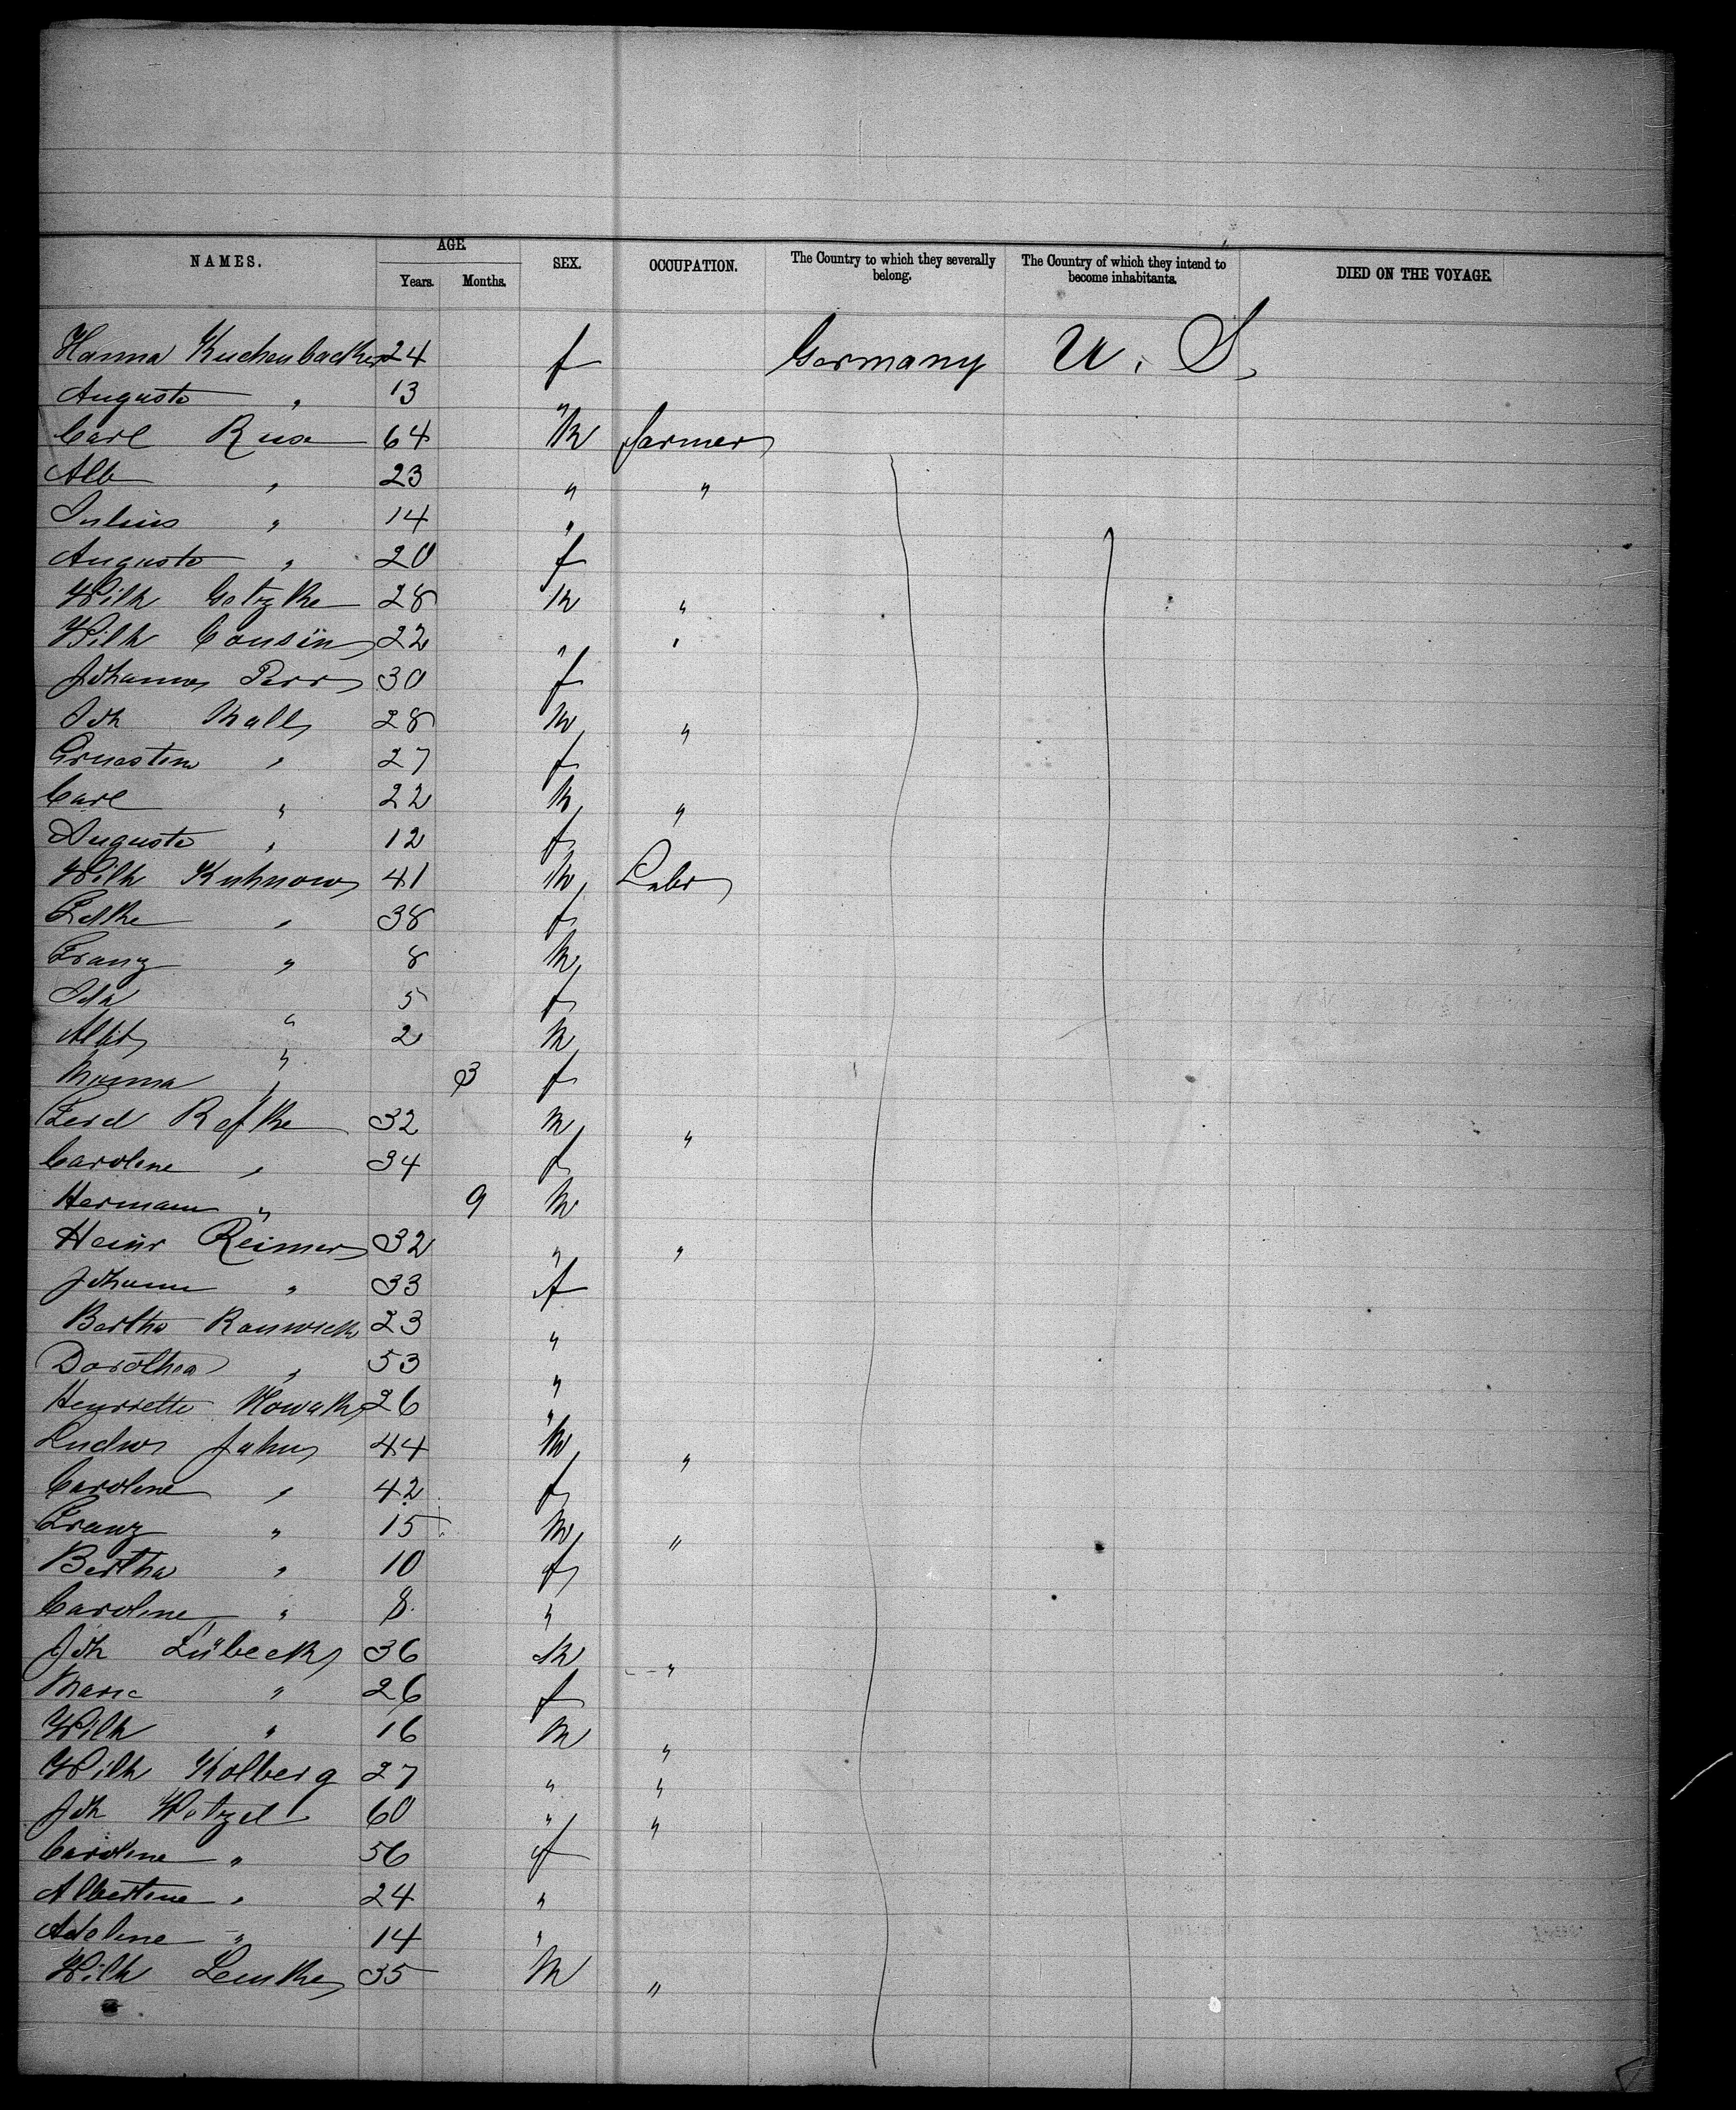 NAMES. AGE. Years. Months. SEX. OCCUPATION. The Country to which they severally belong. The Country of which they intend to become inhabitants. DIED ON THE VOYAGE.
Hanna Kuchenbacker 24 f Germany U. S.
Auguste " 13 "
Carl Ruse 64 M farmer
Alb " 23 " "
Julius " 14 "
Auguste " 20 f
Wilh Gotzke 28 M "
Wilh Cousin 22 " "
Johanna 30 f
Joh Mall 28 M "
Ernestine " 27 f
Carl " 22 M "
Auguste " 12 f
Wilh Kuhnow 41 M Labr
" 38 f
Franz " 8 M
Ida " 5 f
Albt " 2 M
" 3 f
Ferd Rafke 32 M "
Caroline " 34 f
Hermann " 9 M
Heinr Reimer 32 " "
Johanna " 33 f
Bertha 23 "
Dorothea " 53 "
Henriette Nowak 26 "
Ludw Jahn 44 M "
Caroline " 42 f
Franz " 15 M "
Bertha " 10 f
Caroline " 8 "
Joh Lübeck 36 M "
Marie " 26 f
Wilh " 16 M "
Wilh Kolberg 27 " "
Joh Wetzel 60 " "
Caroline " 56 f
Albertine " 24 "
Adeline " 14 "
Wilh Lemke 35 M "